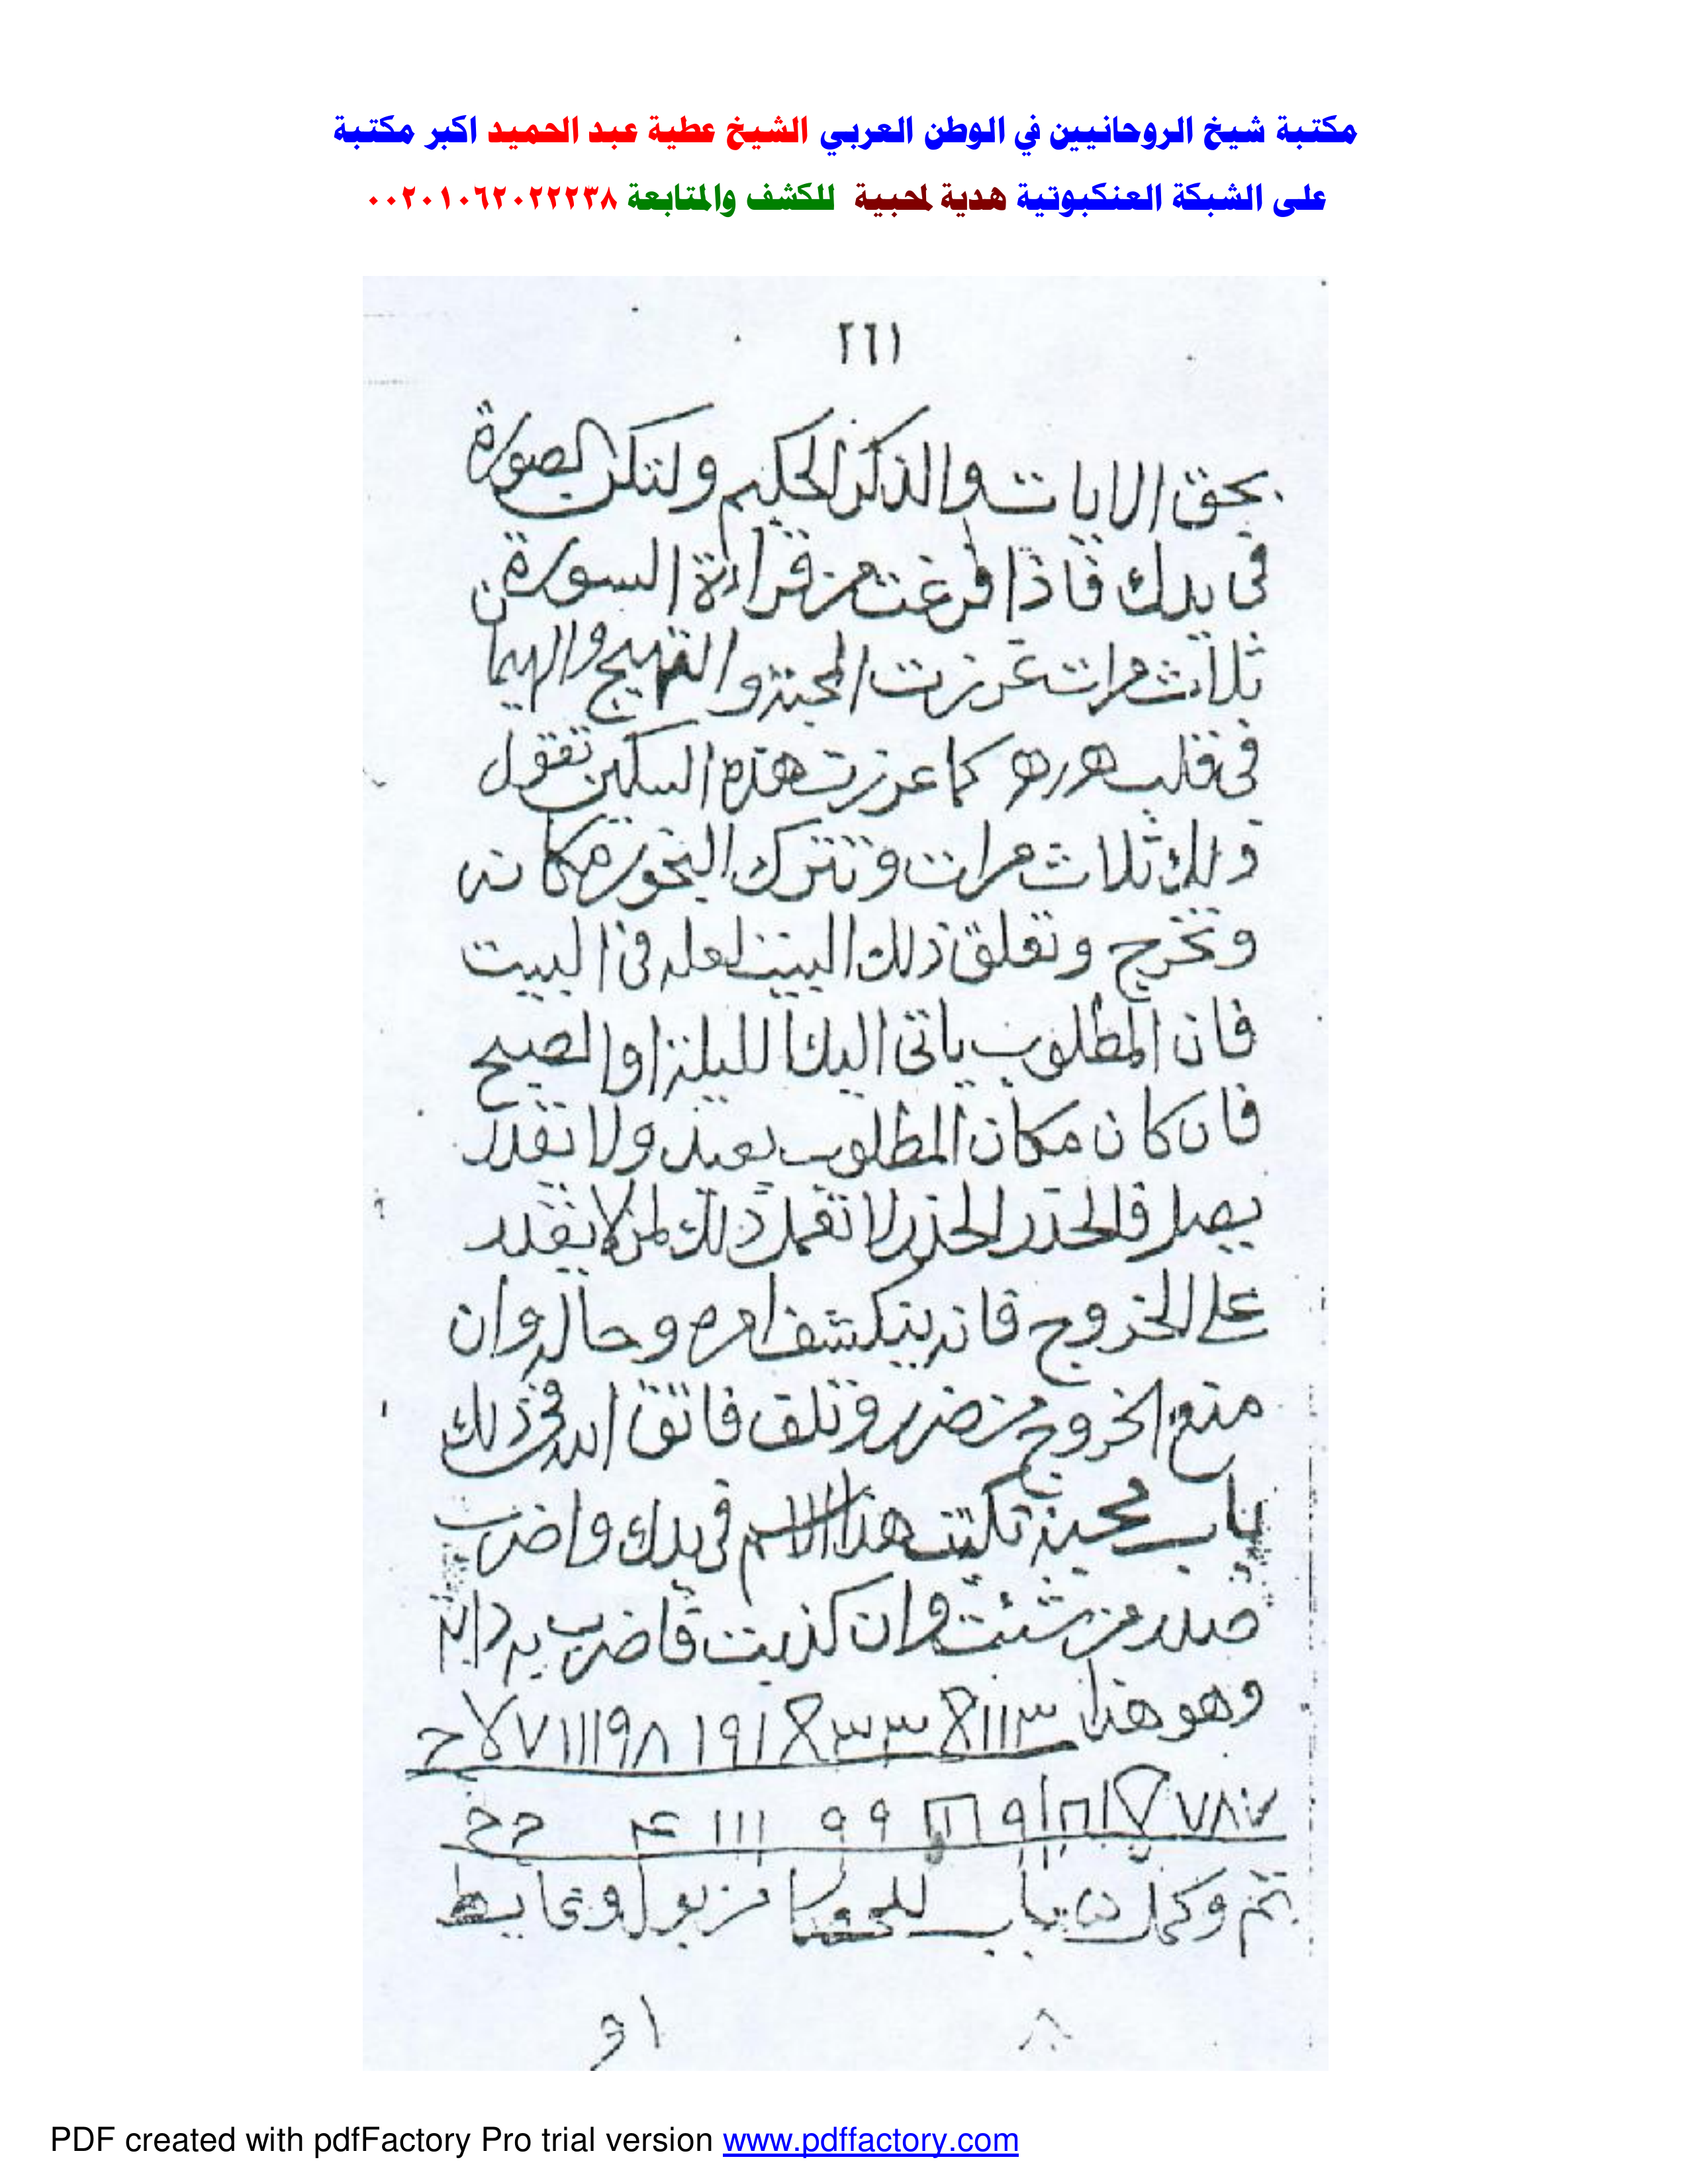 مكتبة شيخ الروحانيين في الوطن العربي الشيخ عطية عبد الحميد اكبر مكتبة
على الشبكة العنكبوتية هدية لمحبية للكشف والمتابعة ٠٠٢٠١٠٦٢٠٢٢٢٣٨
٢٦١
بحق الايات والذكر الحكيم ولتكن الصورة
فى يدك فاذا فرغت من قراءة السورة
ثلاث مرات غرزت المحبة والتهييج والهيمان
فى قلب كما غرزت هذه السكين تقول
ذلك ثلاث مرات وتترك البخور مكانه
وتخرج وتغلق ذلك البيت فى البيت
فان المطلوب ياتى اليك الليلة او الصبح
فان كان مكان المطلوب بعيد ولا تقدر
يصل فالحذر الحذر لا تفعل ذلك لمن لا يقدر
على الخروج فانه ينكشف امره وحاله وان
منع الخروج من ضرر وتلف فاتق الله فى ذلك
باب محبة تكتب هذا الاسم فى يدك واضرب
صدر من شئت وان كذبت فاضرب به دابة
وهو هذا ٣١١ ٣ ٣ ١٩١ ١١١٩٨ ٧ لا ح
٧٨٧ ٩ ٩ ٩ ١١١ ٤ ح ح
تم وكمل باب
PDF created with pdfFactory Pro trial version www.pdffactory.com